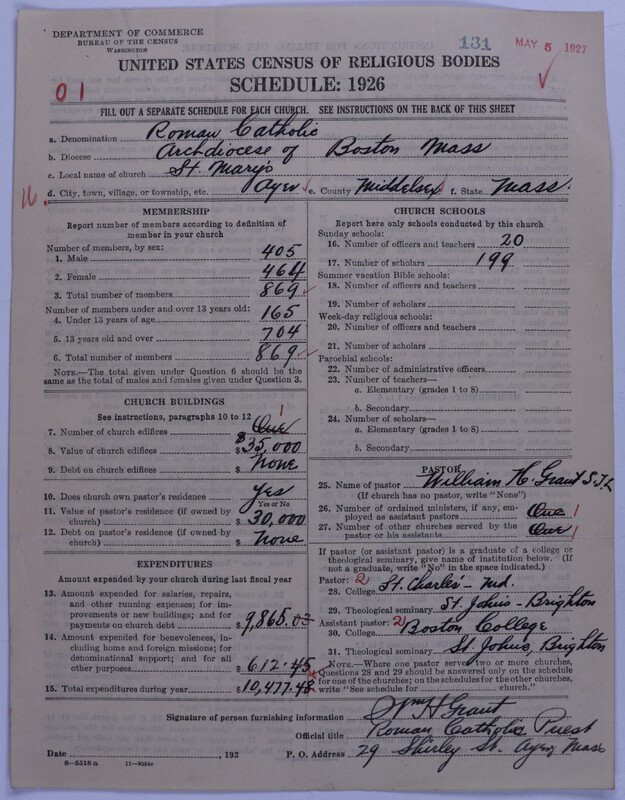 DEPARTMENT OF COMMERCE
BUREAU OF THE CENSUS
WASHINGTON
131
MAY 5 1927
UNITED STATES CENSUS OF RELIGIOUS BODIES
SCHEDULE: 1926
01
FILL OUT A SEPARATE SCHEDULE FOR EACH CHURCH. SEE INSTRUCTIONS ON THE BACK OF THIS SHEET
a. Denomination Roman Catholic
b. Diocese Archdiocese of Boston Mass
c. Local name of church St. Mary's
d. City, town, village, or township, etc. Ayer e. County Middlesex f. State Mass.
MEMBERSHIP
Report number of members according to definition of
member in your church
Number of members, by sex:
1. Male 405
2. Female 464
3. Total number of members 869
Number of members under and over 13 years old:
4. Under 13 years of age 165
5. 13 years old and over 704
6. Total number of members 869
NOTE.—The total given under Question 6 should be the
same as the total of males and females given under Question 3.
CHURCH BUILDINGS
See instructions, paragraphs 10 to 12
7. Number of church edifices One 1
8. Value of church edifices $35,000
9. Debt on church edifices $ None
10. Does church own pastor's residence Yes
Yes or No
11. Value of pastor's residence (if owned by
church) $ 30,000
12. Debt on pastor's residence (if owned by
church) $ None
EXPENDITURES
Amount expended by your church during last fiscal year
13. Amount expended for salaries, repairs,
and other running expenses; for im-
provements or new buildings; and for
payments on church debt $9,865.03
14. Amount expended for benevolences,
including home and foreign missions; for
denominational support; and for all
other purposes $ 612.45
15. Total expenditures during year $10,477.48
CHURCH SCHOOLS
Report here only schools conducted by this church
Sunday schools:
16. Number of officers and teachers 20
17. Number of scholars 199
Summer vacation Bible schools:
18. Number of officers and teachers
19. Number of scholars
Week-day religious schools:
20. Number of officers and teachers
21. Number of scholars
Parochial schools:
22. Number of administrative officers
23. Number of teachers—
a. Elementary (grades 1 to 8)
b. Secondary
24. Number of scholars—
a. Elementary (grades 1 to 8)
b. Secondary
PASTOR
25. Name of pastor William H. Grant S.T.L
(If church has no pastor, write "None")
26. Number of ordained ministers, if any, em-
ployed as assistant pastors One 1
27. Number of other churches served by the
pastor or his assistants One 1
If pastor (or assistant pastor) is a graduate of a college or
theological seminary, give name of institution below. (If
not a graduate, write "No" in the space indicated.)
Pastor: 2
28. College St. Charles' - Md.
29. Theological seminary St. Johns - Brighton
Assistant pastor: 2
30. College Boston College
31. Theological seminary St. Johns, Brighton
NOTE.—Where one pastor serves two or more churches,
Questions 28 and 29 should be answered only on the schedule
for one of the churches; on the schedules for the other churches,
write "See schedule for church."
Signature of person furnishing information Wm H Grant
Official title Roman Catholic Priest
Date , 192 P. O. Address 29 Shirley St. Ayer Mass
8—5518 a